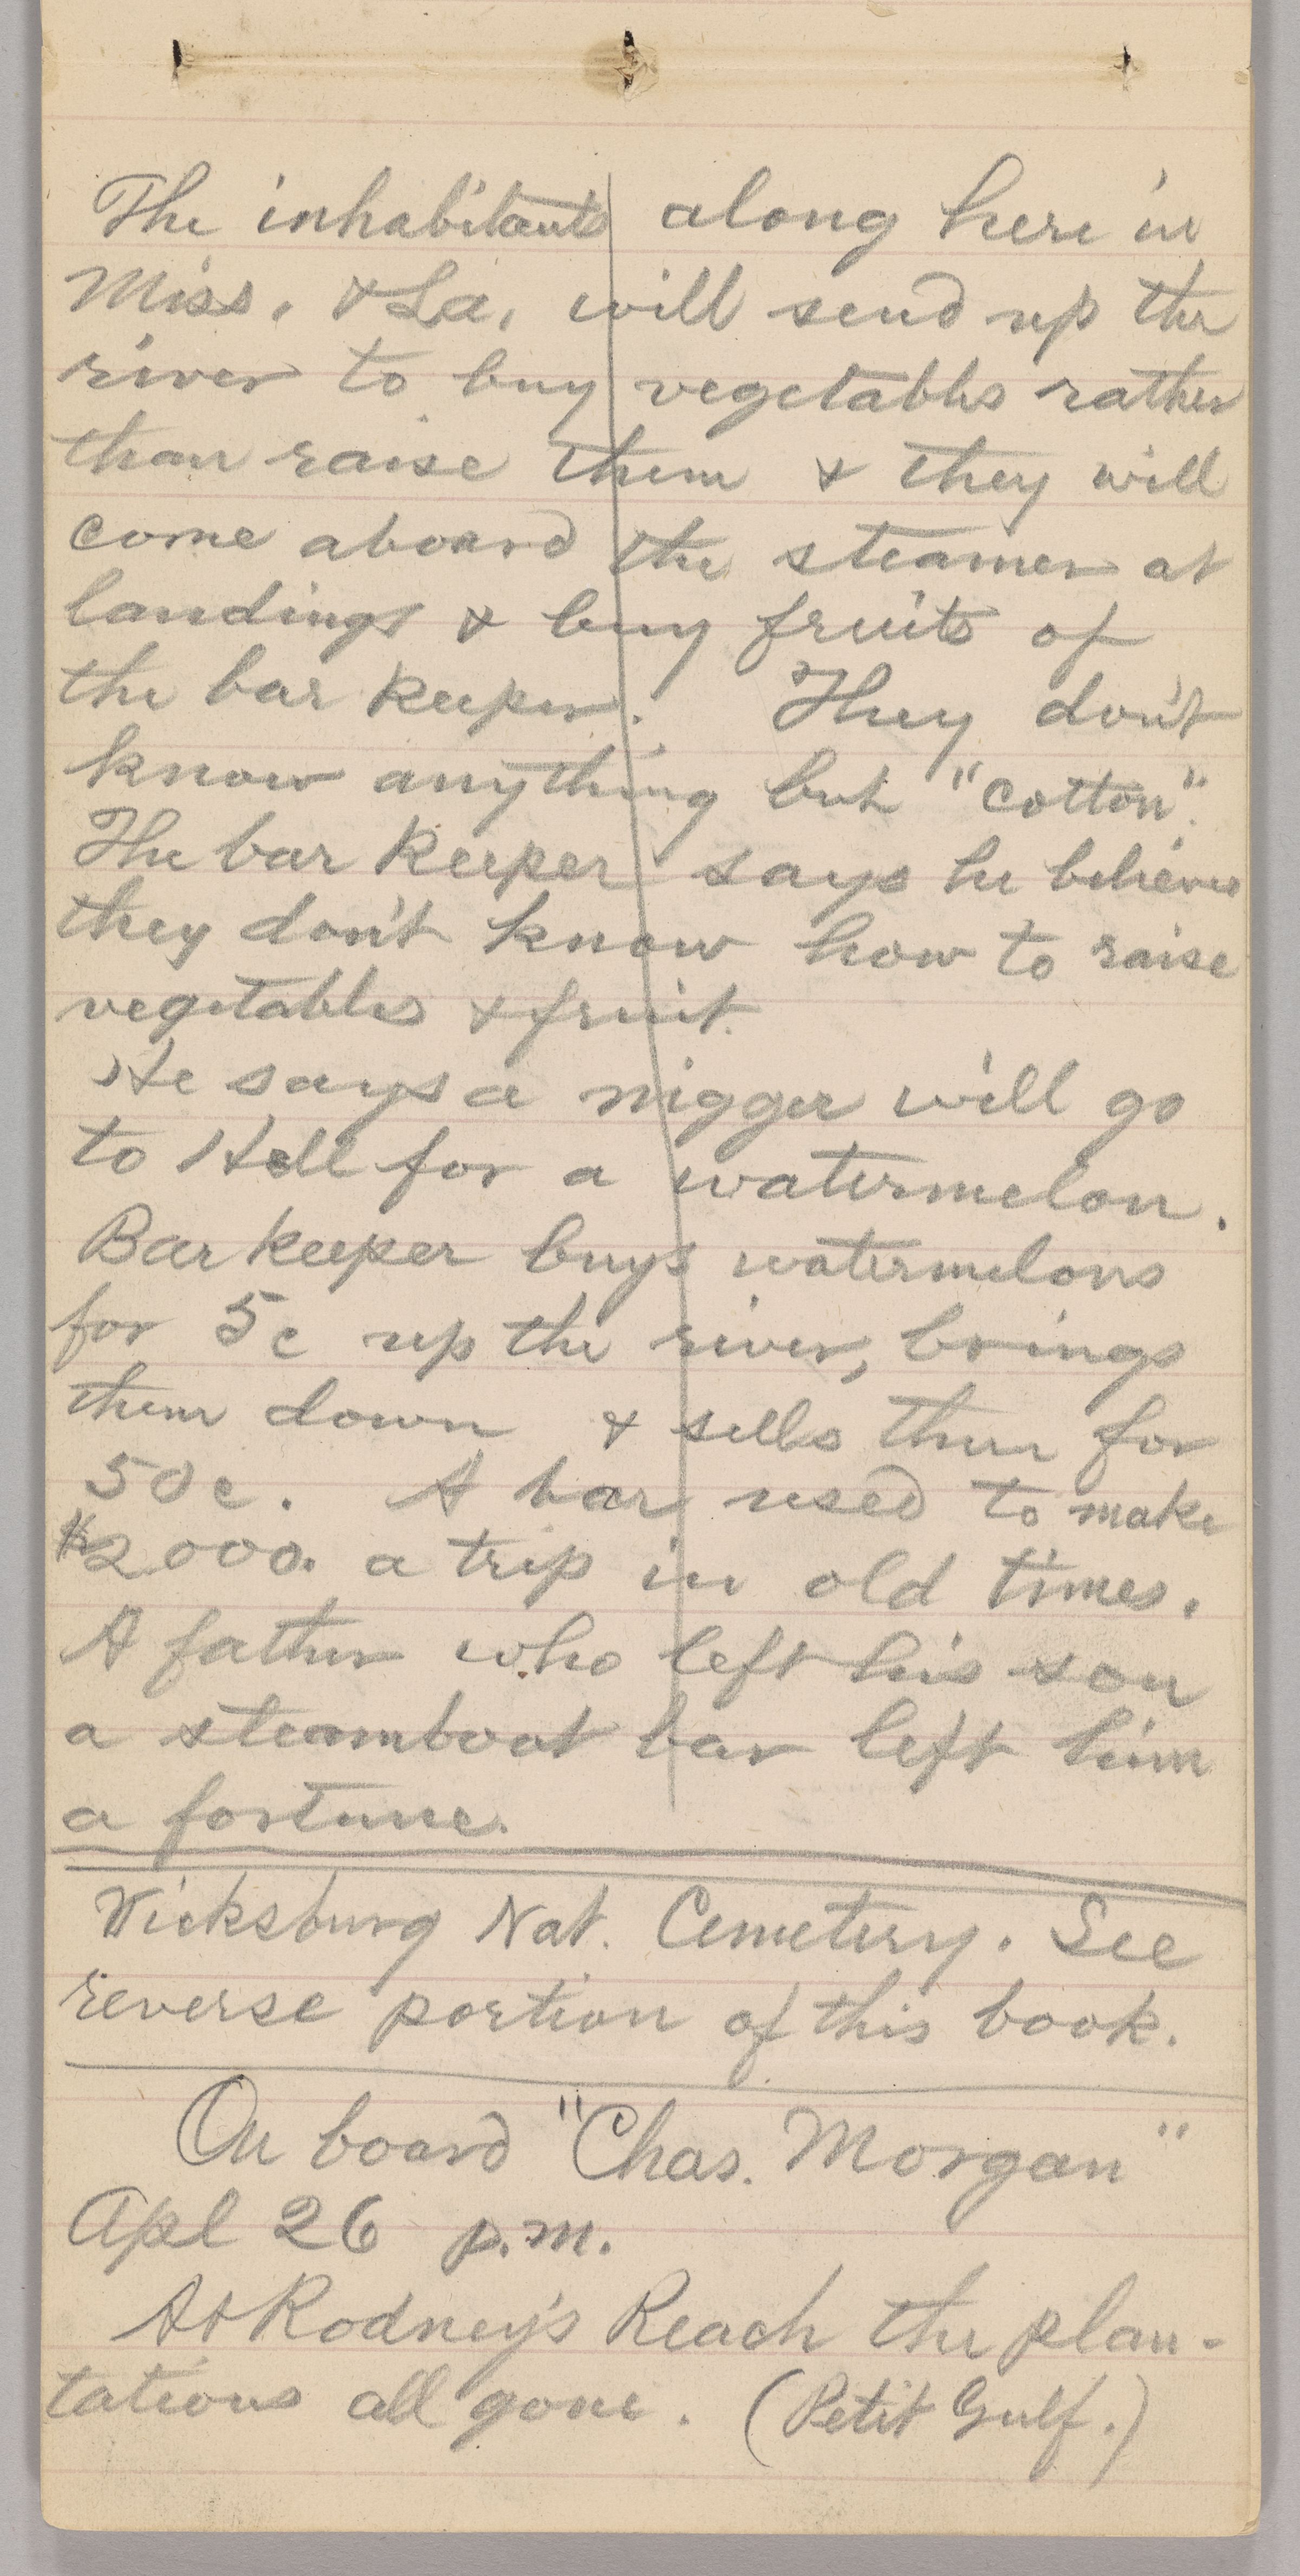 The inhabitants along here in
Miss. & La. will send up the
river to buy vegetables rather
than raise them & they will
come aboard the steamer at
landings & buy fruits of
the bar keeper. They don't
know anything but "cotton".
The bar keeper says he believes
they don't know how to raise
vegetables & fruit.
He says a nigger will go
to Hell for a watermelon.
Bar keeper buys watermelons
for 5c up the river, brings
them down & sells them for
50c. A bar used to make
$2000. a trip in old times.
A father who left his son
a steamboat bar left him
a fortune.
Vicksburg Nat. Cemetery. See
reverse portion of this book.
On board "Chas. Morgan"
Apl 26 p.m.
At Rodney's Reach the plan-
tations all gone. (Petit Gulf.)